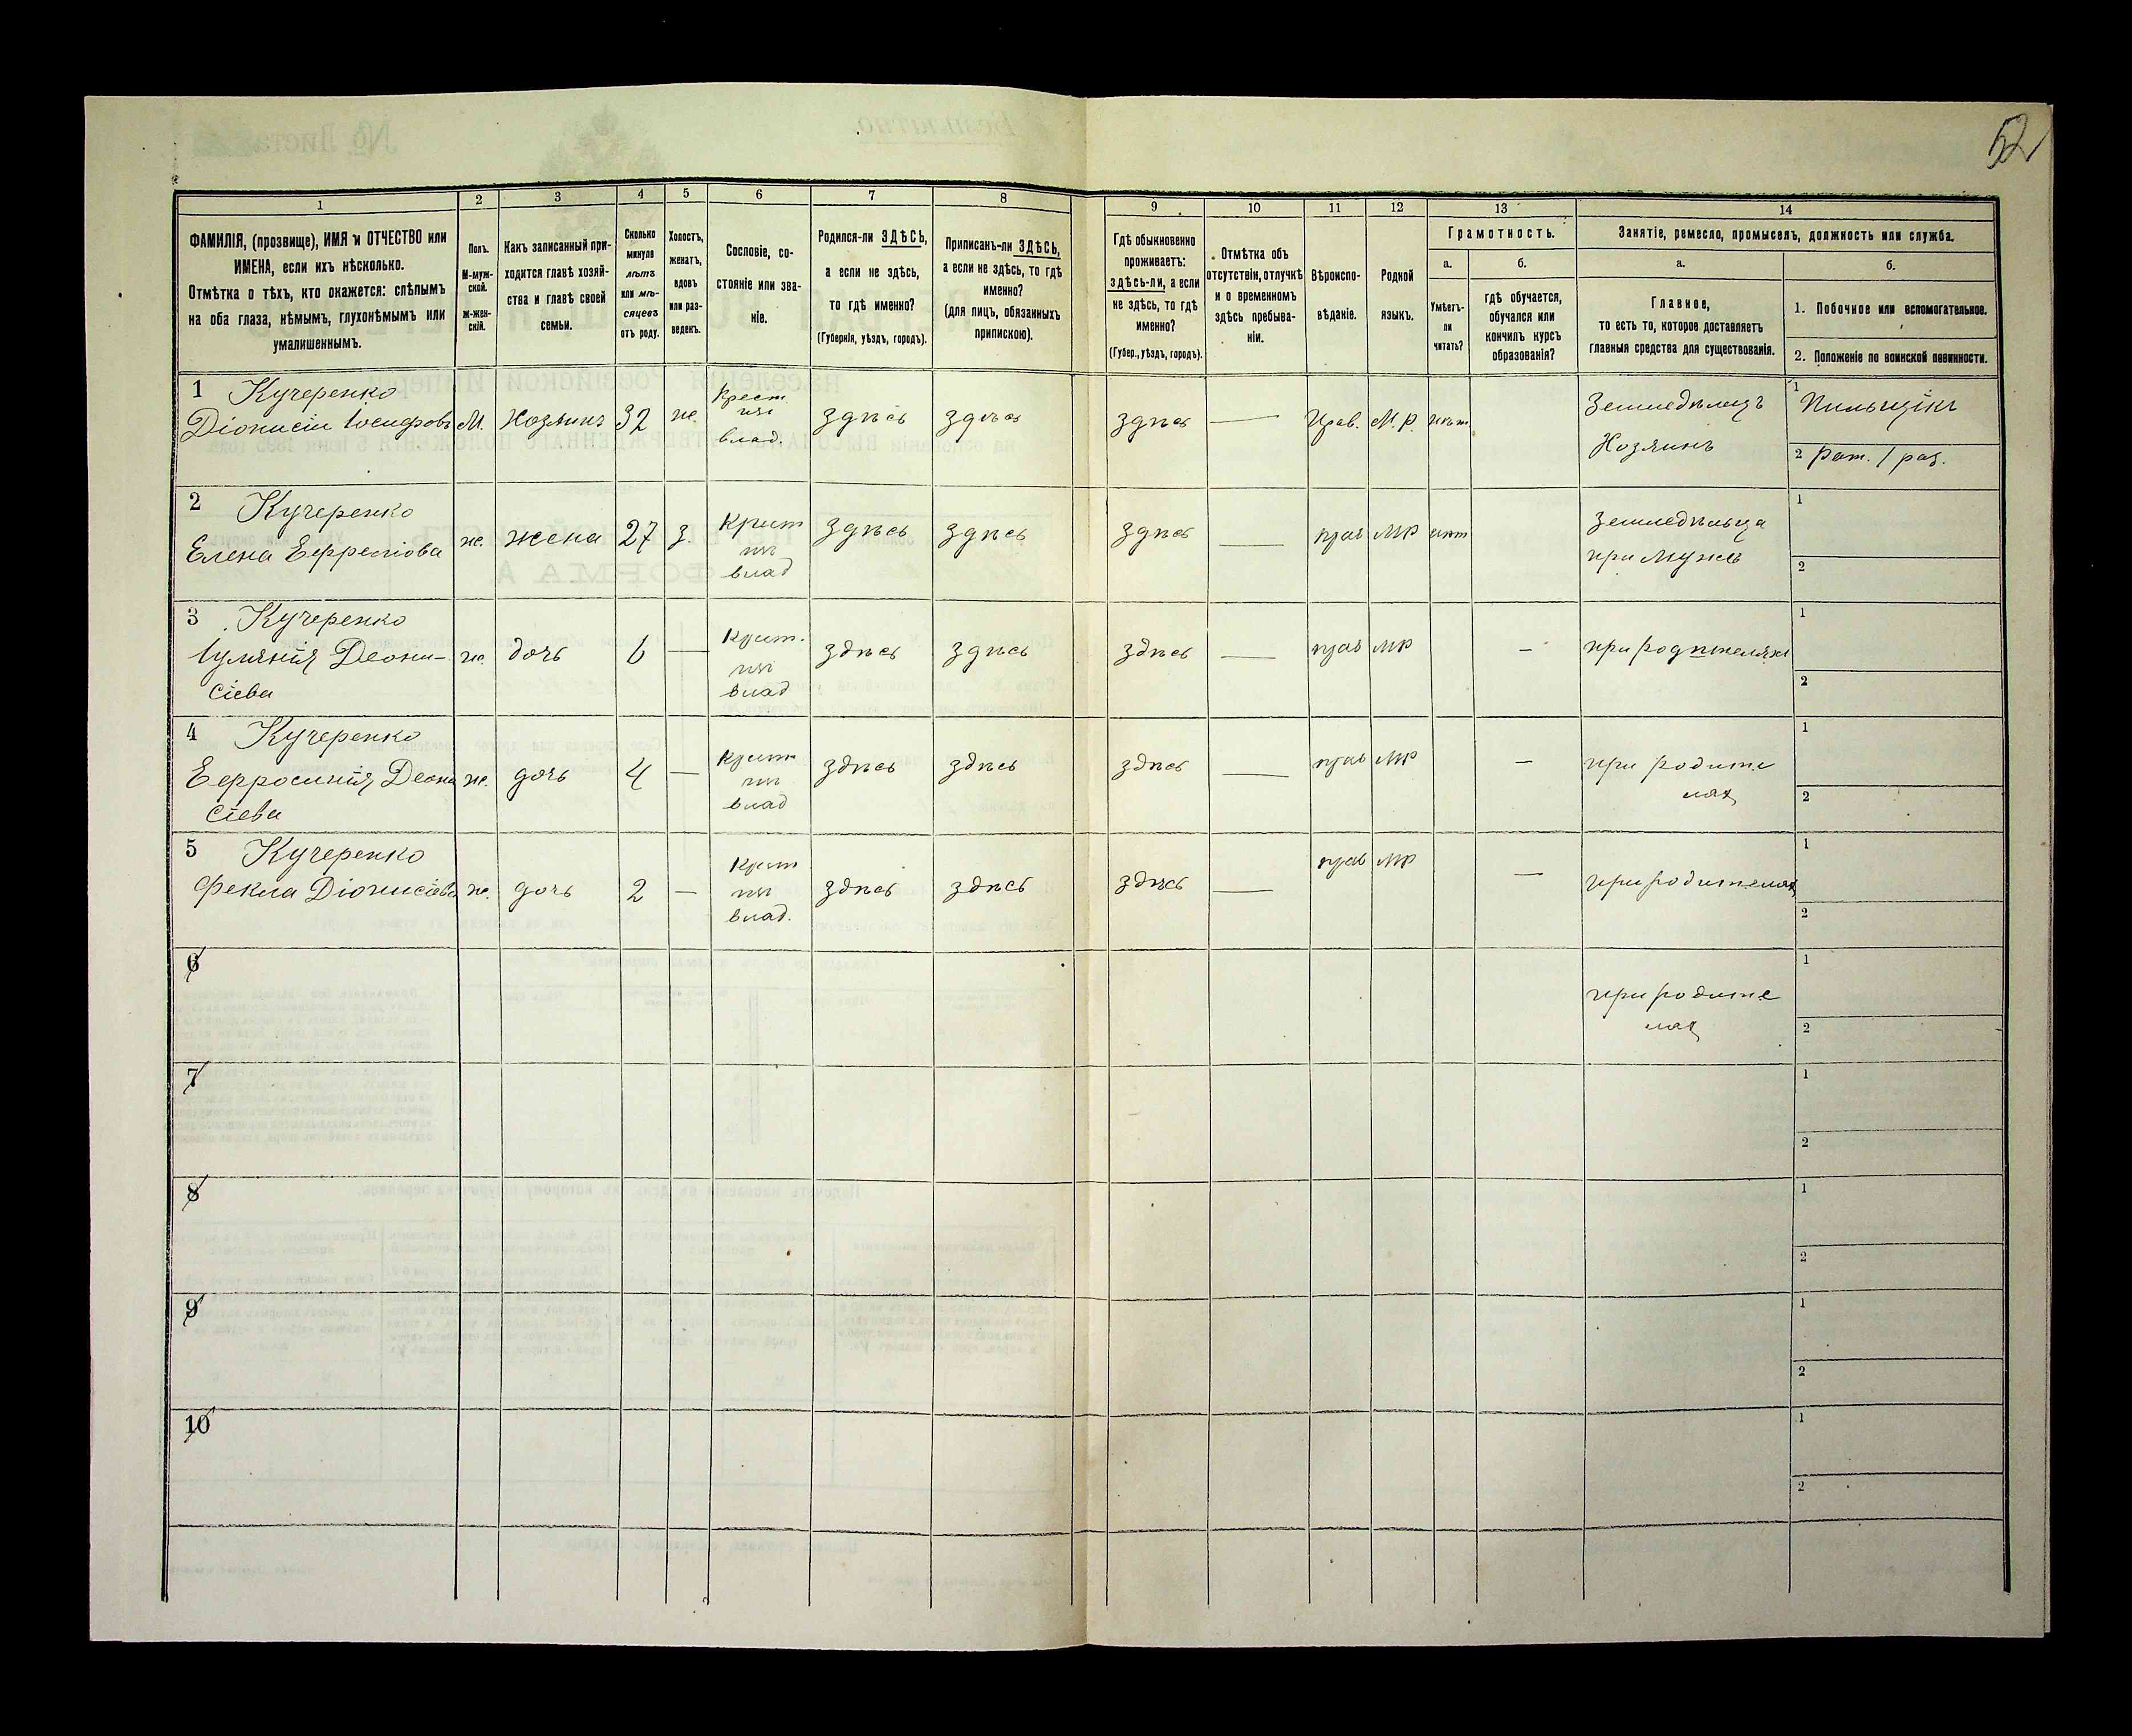 52
1 2 3 4 5 6 7 8 9 10 11 12 13 14
ФАМИЛІЯ, (прозвище), ИМЯ и ОТЧЕСТВО или
ИМЕНА, если ихъ нѣсколько.
Отмѣтка о тѣхъ, кто окажется: слѣпымъ
на оба глаза, нѣмымъ, глухонѣмымъ или
умалишеннымъ.
Полъ.
М-муж-
ской.
ж-жен-
скій.
Какъ записанный при-
ходится главѣ хозяй-
ства и главѣ своей
семьи.
Сколько
минуло
лѣтъ
или мѣ-
сяцевъ
отъ роду.
Холостъ,
женатъ,
вдовъ
или раз-
веденъ.
Сословіе, со-
стояніе или зва-
ніе.
Родился-ли ЗДѢСЬ,
а если не здѣсь,
то гдѣ именно?
(Губернія, уѣздъ, городъ).
Приписанъ-ли ЗДѢСЬ,
а если не здѣсь, то гдѣ
именно?
(для лицъ, обязанныхъ
припискою).
Гдѣ обыкновенно
проживаетъ:
здѣсь-ли, а если
не здѣсь, то гдѣ
именно?
(Губер., уѣздъ, городъ).
Отмѣтка объ
отсутствіи, отлучкѣ
и о временномъ
здѣсь пребыва-
ніи.
Вѣроиспо-
вѣданіе.
Родной
языкъ.
Грамотность.
а.
Умѣетъ-
ли
читать?
б.
гдѣ обучается,
обучался или
кончилъ курсъ
образованія?
Занятіе, ремесло, промыселъ, должность или служба.
а.
Главное,
то есть то, которое доставляетъ
главныя средства для существованія.
б.
1. Побочное или вспомогательное.
2. Положеніе по воинской повинности.
1 Кучеренко
Діонисій Іосифовъ М. Хозяинъ 32 ж. Крест
изъ
влад. здѣсь здѣсь здѣсь — Прав. М.Р. нѣт Земледѣлецъ
Хозяинъ
1 Пильщикъ
2 Рат. 1 раз.
2 Кучеренко
Елена Ефремова ж. жена 27 з. Крест
изъ
влад здѣсь здѣсь здѣсь — прав МР нѣт Земледѣльца
при мужѣ
1
2
3 Кучеренко
Іулянія Деони-
сіева ж. дочь 6 — Крест.
изъ
влад здѣсь здѣсь здѣсь — прав МР — при родителяхъ
1
2
4 Кучеренко
Ефросинія Деони
сіева ж. дочь 4 — Крест
изъ
влад здѣсь здѣсь здѣсь — прав МР — при родите
лях
1
2
5 Кучеренко
Фекла Діонисіева ж. дочь 2 — Крест
изъ
влад. здѣсь здѣсь здѣсь — прав МР — при родителях
1
2
6 при родите
лях
1
2
7
1
2
8
1
2
9
1
2
10
1
2